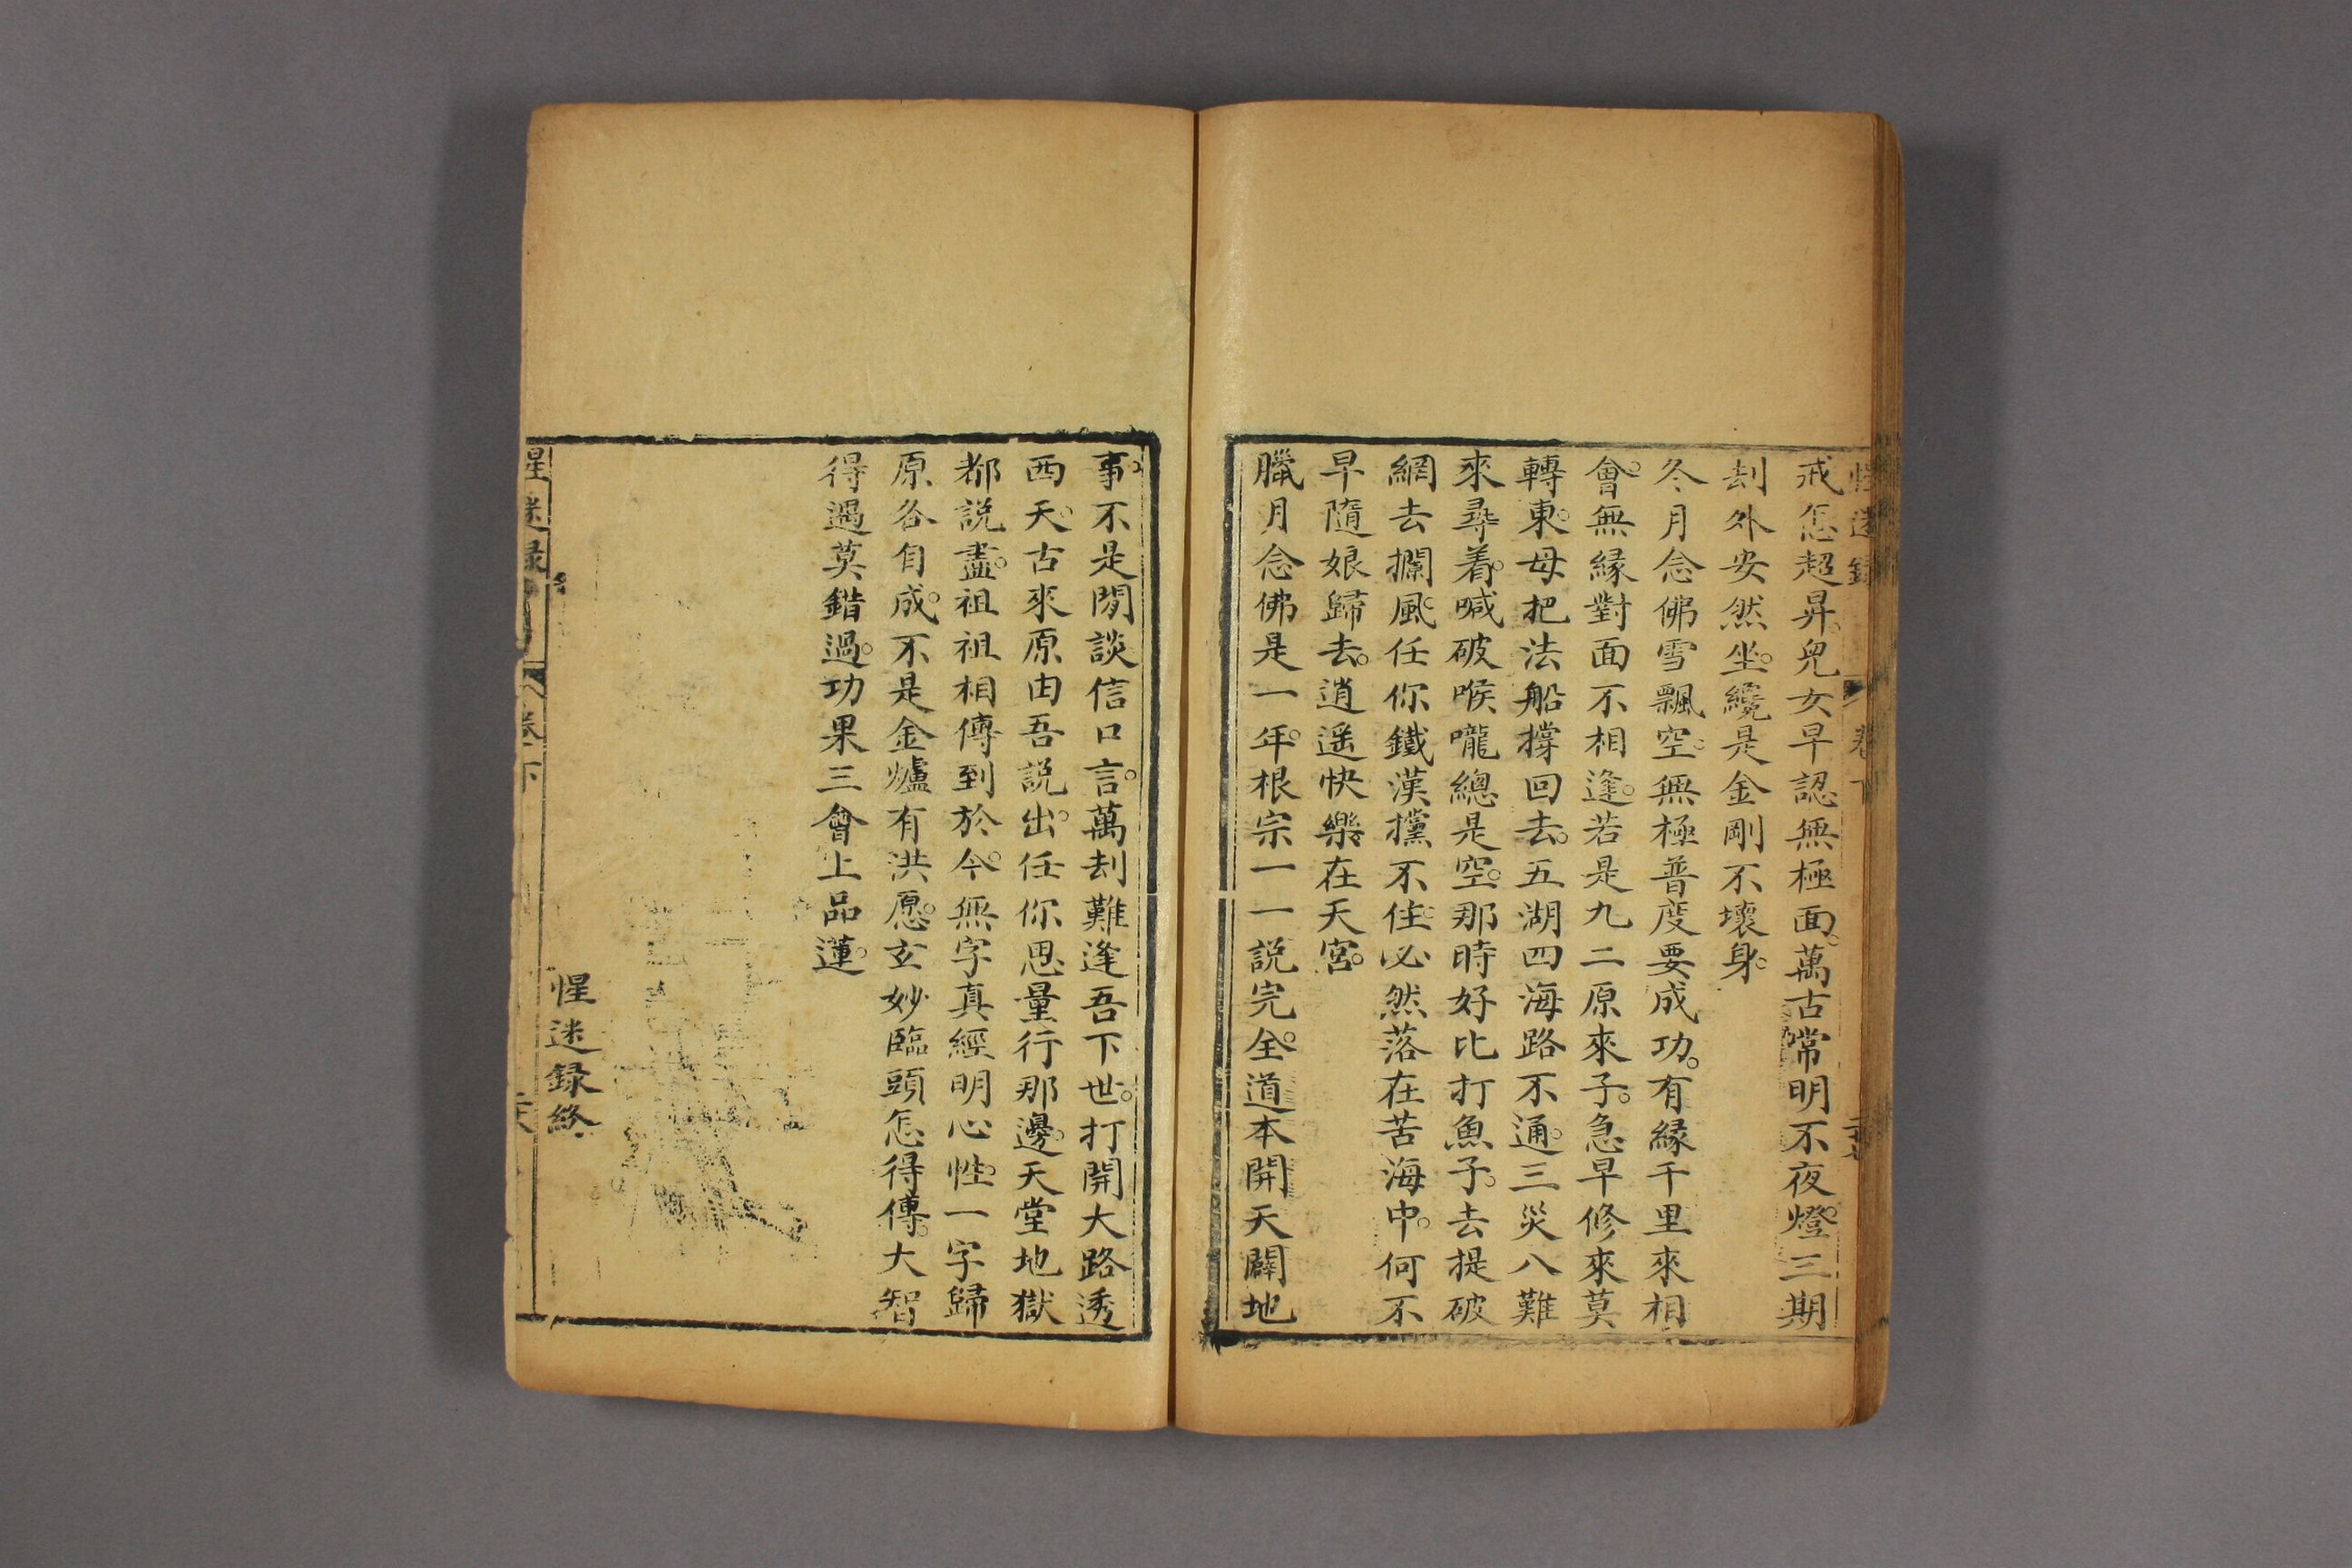 惺迷錄 卷下
戒怎超昇。兒女早認無極面。萬古常明不夜燈。三期
刦外安然坐。纔是金剛不壞身。
冬月念佛雪飄空。無極普度要成功。有緣千里來相
會。無緣對面不相逢。若是九二原來子。急早修來莫
轉東。母把法船撐回去。五湖四海路不通。三災八難
來尋着。喊破喉嚨總是空。那時好比打魚子。去提破
網去攔風。任你鐵漢攩不住。必然落在苦海中。何不
早隨娘歸去。逍遥快樂在天宮。
臘月念佛是一年。根宗一一説完全。道本開天闢地
事。不是閒談信口言。萬刦難逢吾下世。打開大路透
西天。古來原由吾説出。任你思量行那邊。天堂地獄
都説盡。祖祖相傳到於今。無字真經明心性。一字歸
原各自成。不是金爐有洪愿。玄妙臨頭怎得傳。大智
得過莫錯過。功果三會上品蓮。
惺迷録終
惺迷録 卷下